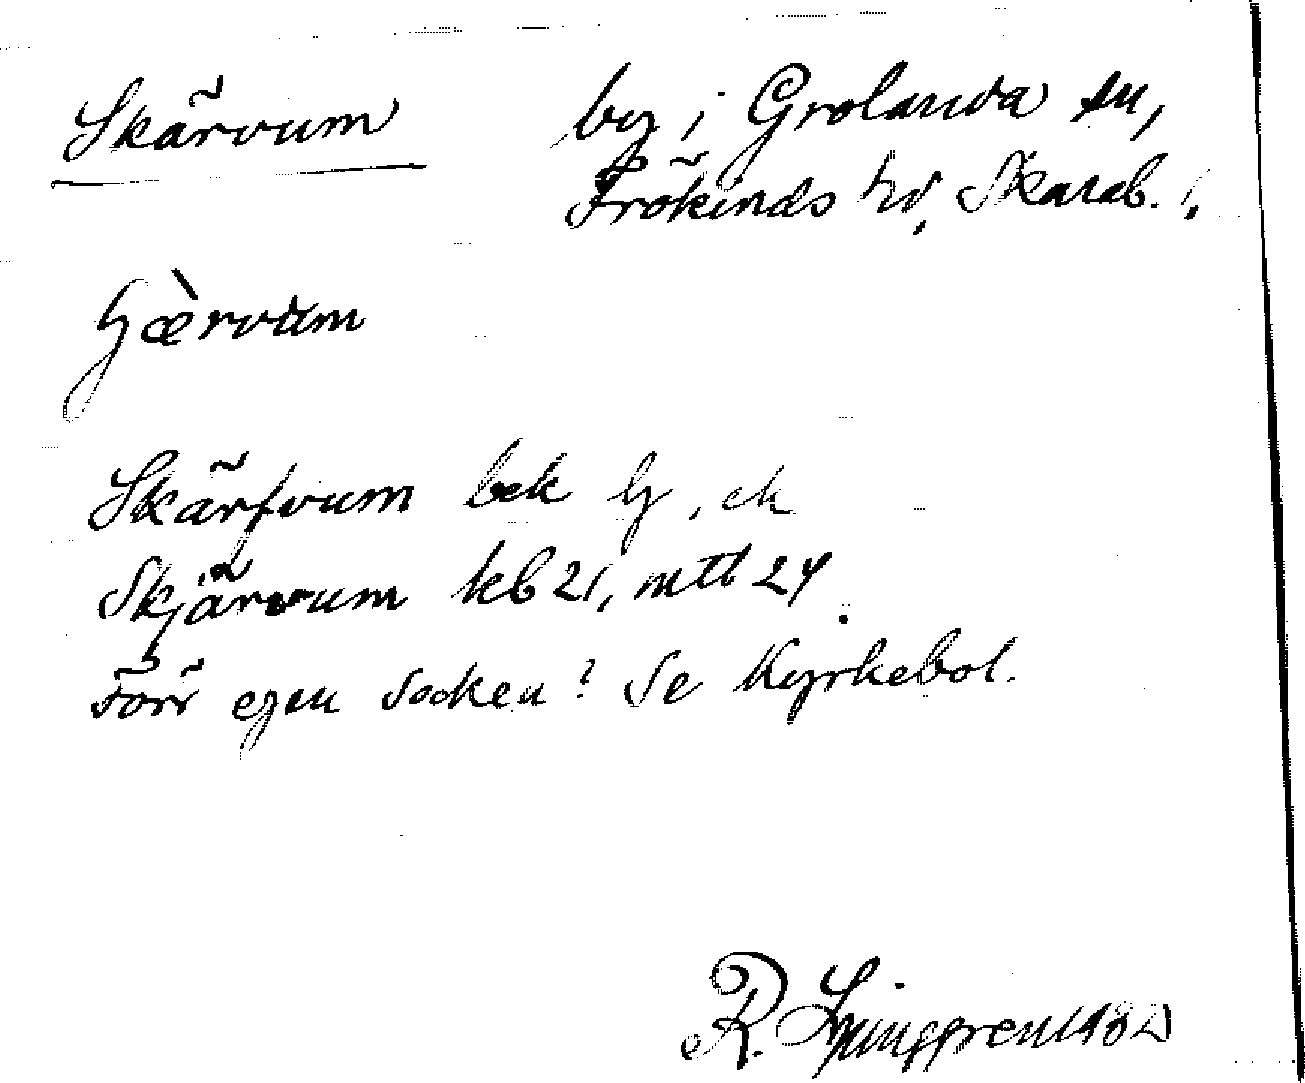 Skärvum by i Grolanda sn,
Frökinds hd, Skarab. l,
Skärfvum bek
Skjärvum kb 21, mtl 24
Förr egen socken? Se Kyrkebol.
R. Ljunggren